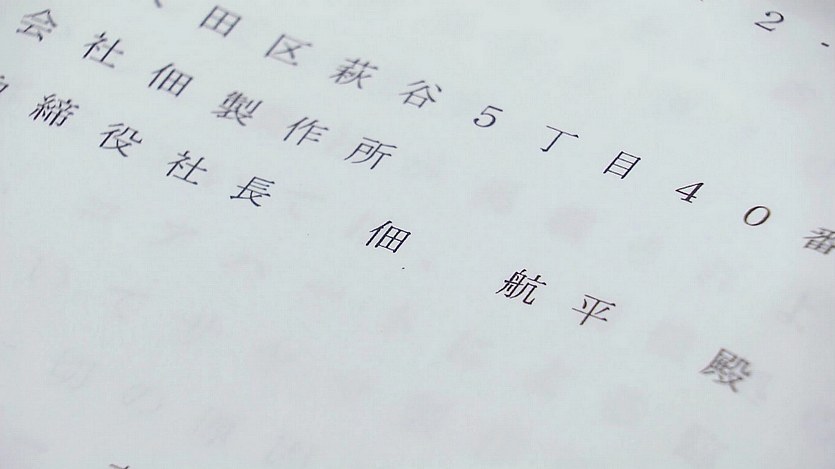 2
田区萩谷5丁目40番
会社佃製作所
締役社長　佃　航平　殿